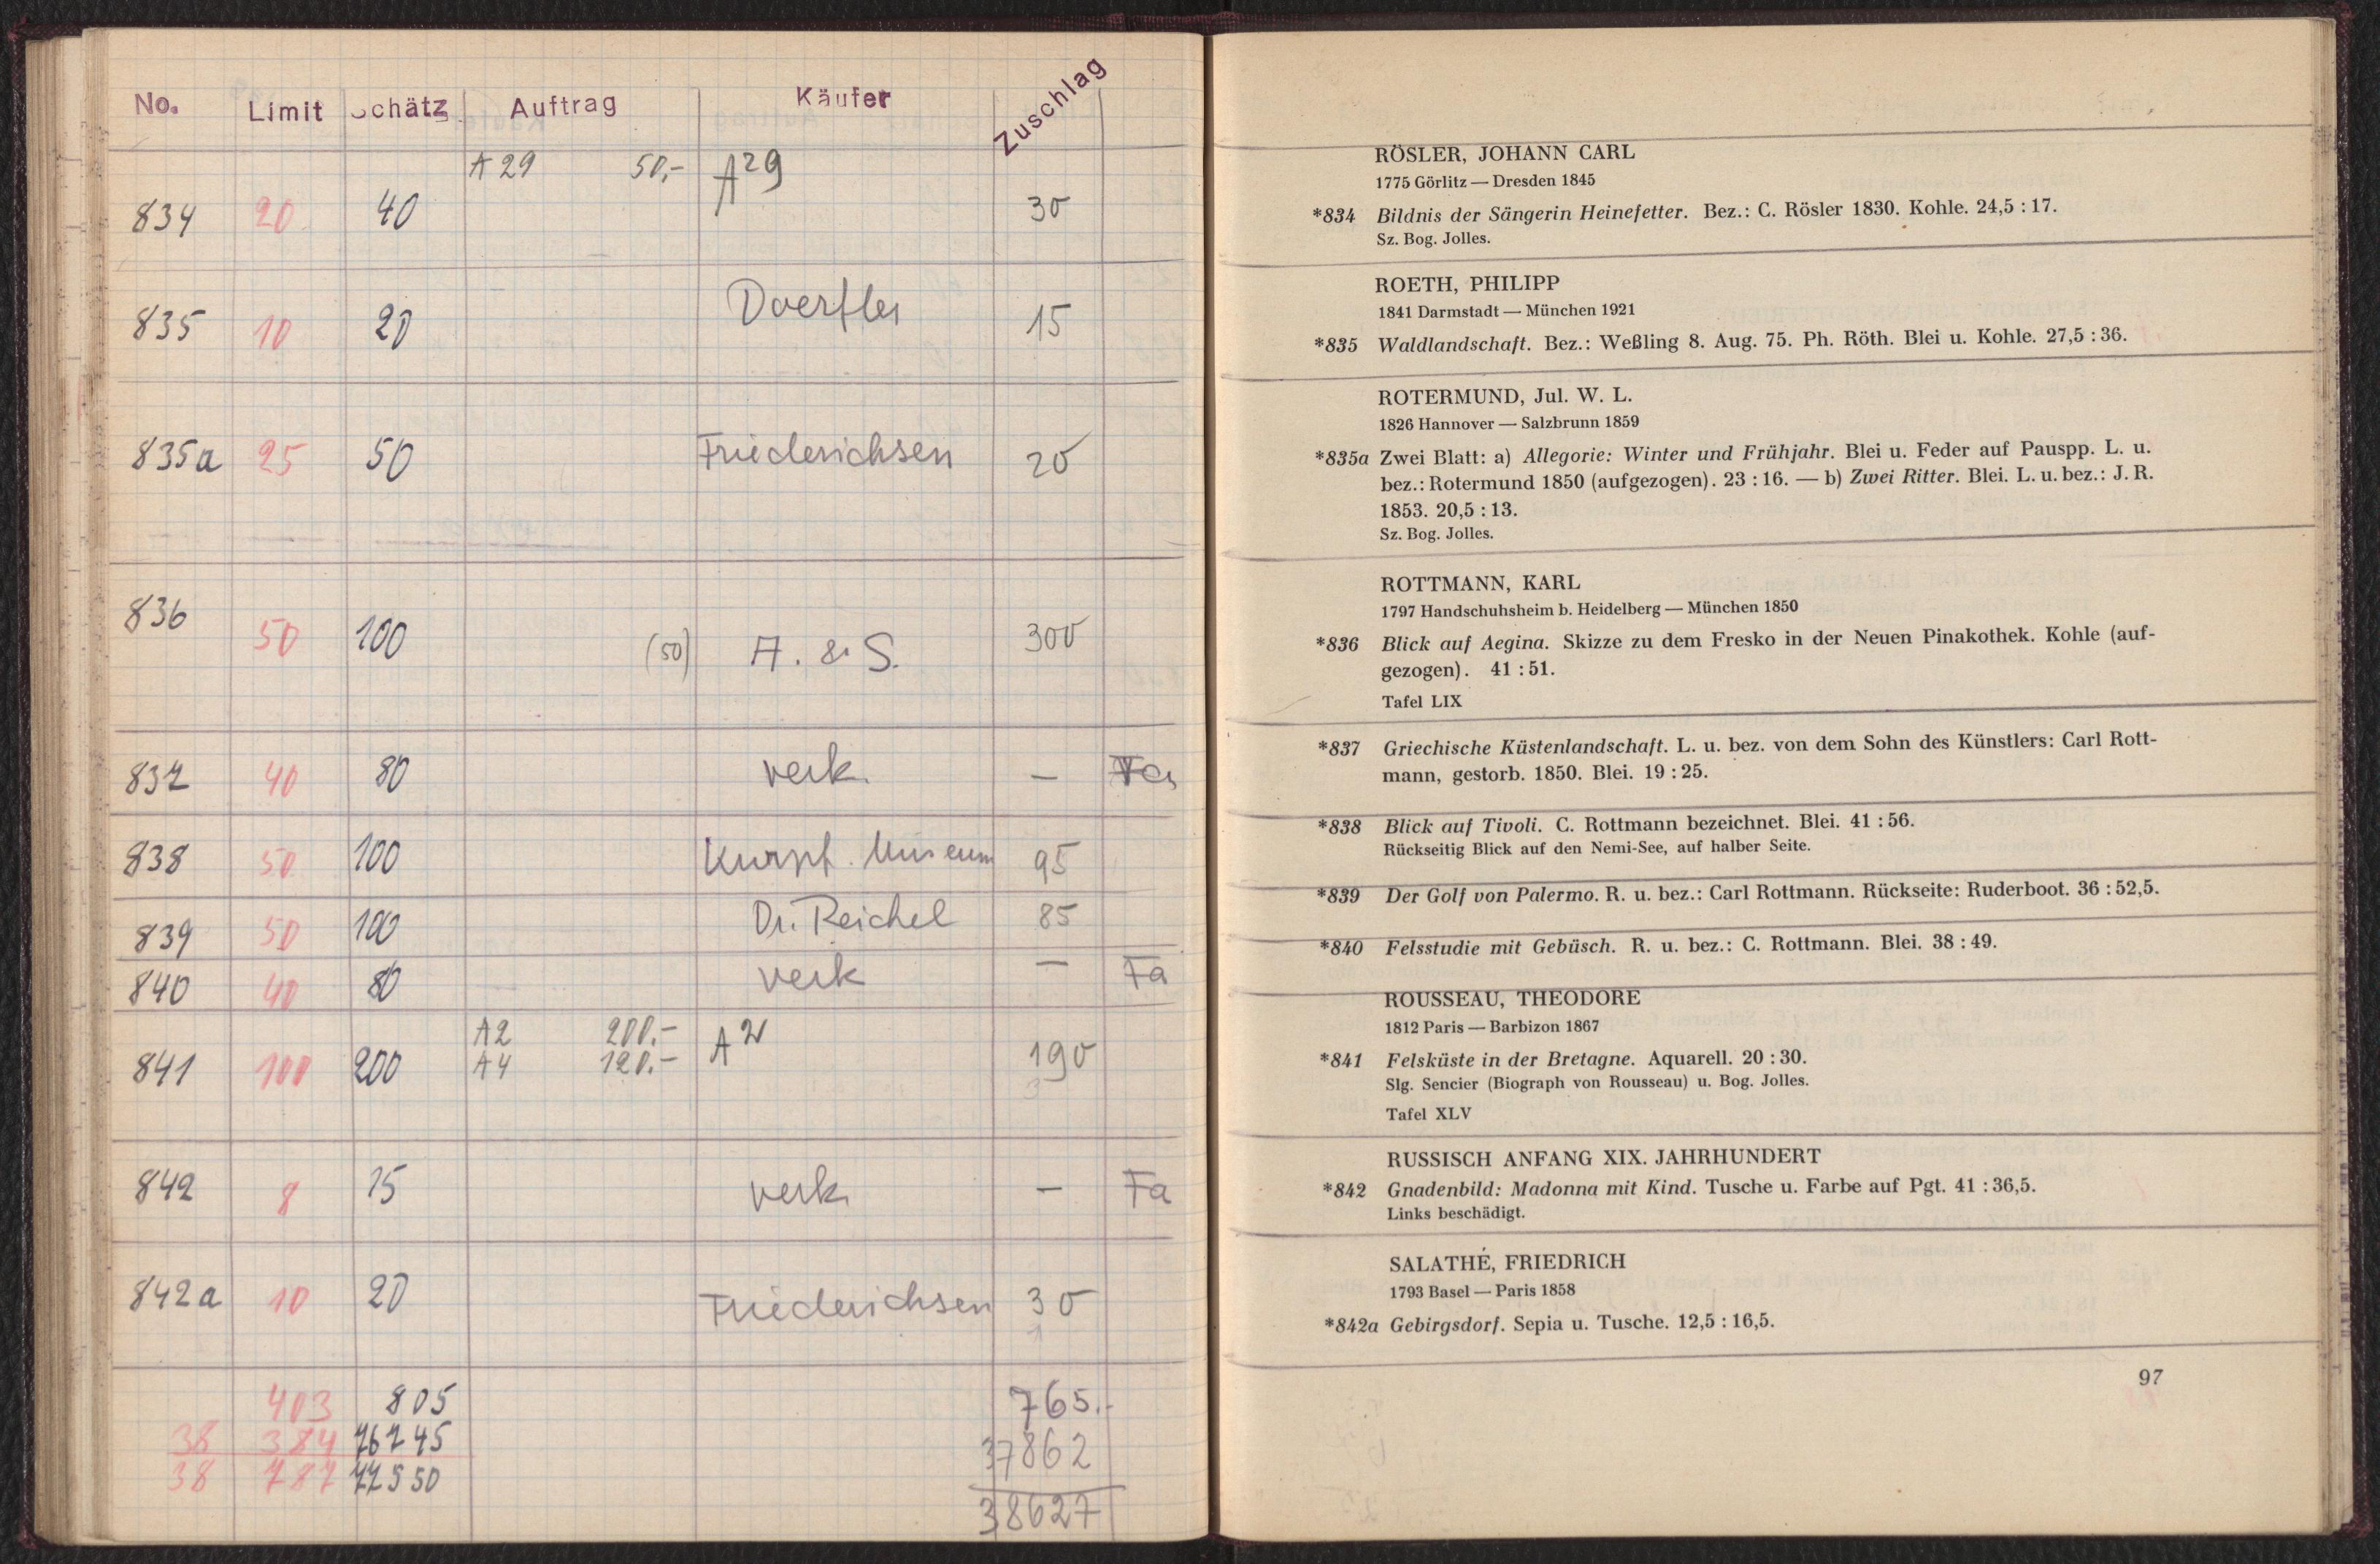 No. Limit Schätz Auftrag Käufer Zuschlag
A 29 50,- A29
834 20 40 30
835 10 20 Doerfler 15
835a 25 50 Friederichsen 20
836 50 100 (50) A. & S. 300
837 40 80 verk. — Fa
838 50 100 Kurpf. Museum 95
839 50 100 Dr. Reichel 85
840 40 80 verk — Fa
A2 200.- A2
841 100 200 A4 120.- 190
842 8 15 verk. — Fa
842a 10 20 Friederichsen 30
403 805 765.-
38 384 76745 37862
38 787 77550 38627
RÖSLER, JOHANN CARL
1775 Görlitz — Dresden 1845
*834 Bildnis der Sängerin Heinefetter. Bez.: C. Rösler 1830. Kohle. 24,5 : 17.
Sz. Bog. Jolles.
ROETH, PHILIPP
1841 Darmstadt — München 1921
*835 Waldlandschaft. Bez.: Weßling 8. Aug. 75. Ph. Röth. Blei u. Kohle. 27,5 : 36.
ROTERMUND, Jul. W. L.
1826 Hannover — Salzbrunn 1859
*835a Zwei Blatt: a) Allegorie: Winter und Frühjahr. Blei u. Feder auf Pauspp. L. u.
bez.: Rotermund 1850 (aufgezogen). 23 : 16. — b) Zwei Ritter. Blei. L. u. bez.: J. R.
1853. 20,5 : 13.
Sz. Bog. Jolles.
ROTTMANN, KARL
1797 Handschuhsheim b. Heidelberg — München 1850
*836 Blick auf Aegina. Skizze zu dem Fresko in der Neuen Pinakothek. Kohle (auf-
gezogen). 41 : 51.
Tafel LIX
*837 Griechische Küstenlandschaft. L. u. bez. von dem Sohn des Künstlers: Carl Rott-
mann, gestorb. 1850. Blei. 19 : 25.
*838 Blick auf Tivoli. C. Rottmann bezeichnet. Blei. 41 : 56.
Rückseitig Blick auf den Nemi-See, auf halber Seite.
*839 Der Golf von Palermo. R. u. bez.: Carl Rottmann. Rückseite: Ruderboot. 36 : 52,5.
*840 Felsstudie mit Gebüsch. R. u. bez.: C. Rottmann. Blei. 38 : 49.
ROUSSEAU, THEODORE
1812 Paris — Barbizon 1867
*841 Felsküste in der Bretagne. Aquarell. 20 : 30.
Slg. Sencier (Biograph von Rousseau) u. Bog. Jolles.
Tafel XLV
RUSSISCH ANFANG XIX. JAHRHUNDERT
*842 Gnadenbild: Madonna mit Kind. Tusche u. Farbe auf Pgt. 41 : 36,5.
Links beschädigt.
SALATHÉ, FRIEDRICH
1793 Basel — Paris 1858
*842a Gebirgsdorf. Sepia u. Tusche. 12,5 : 16,5.
97